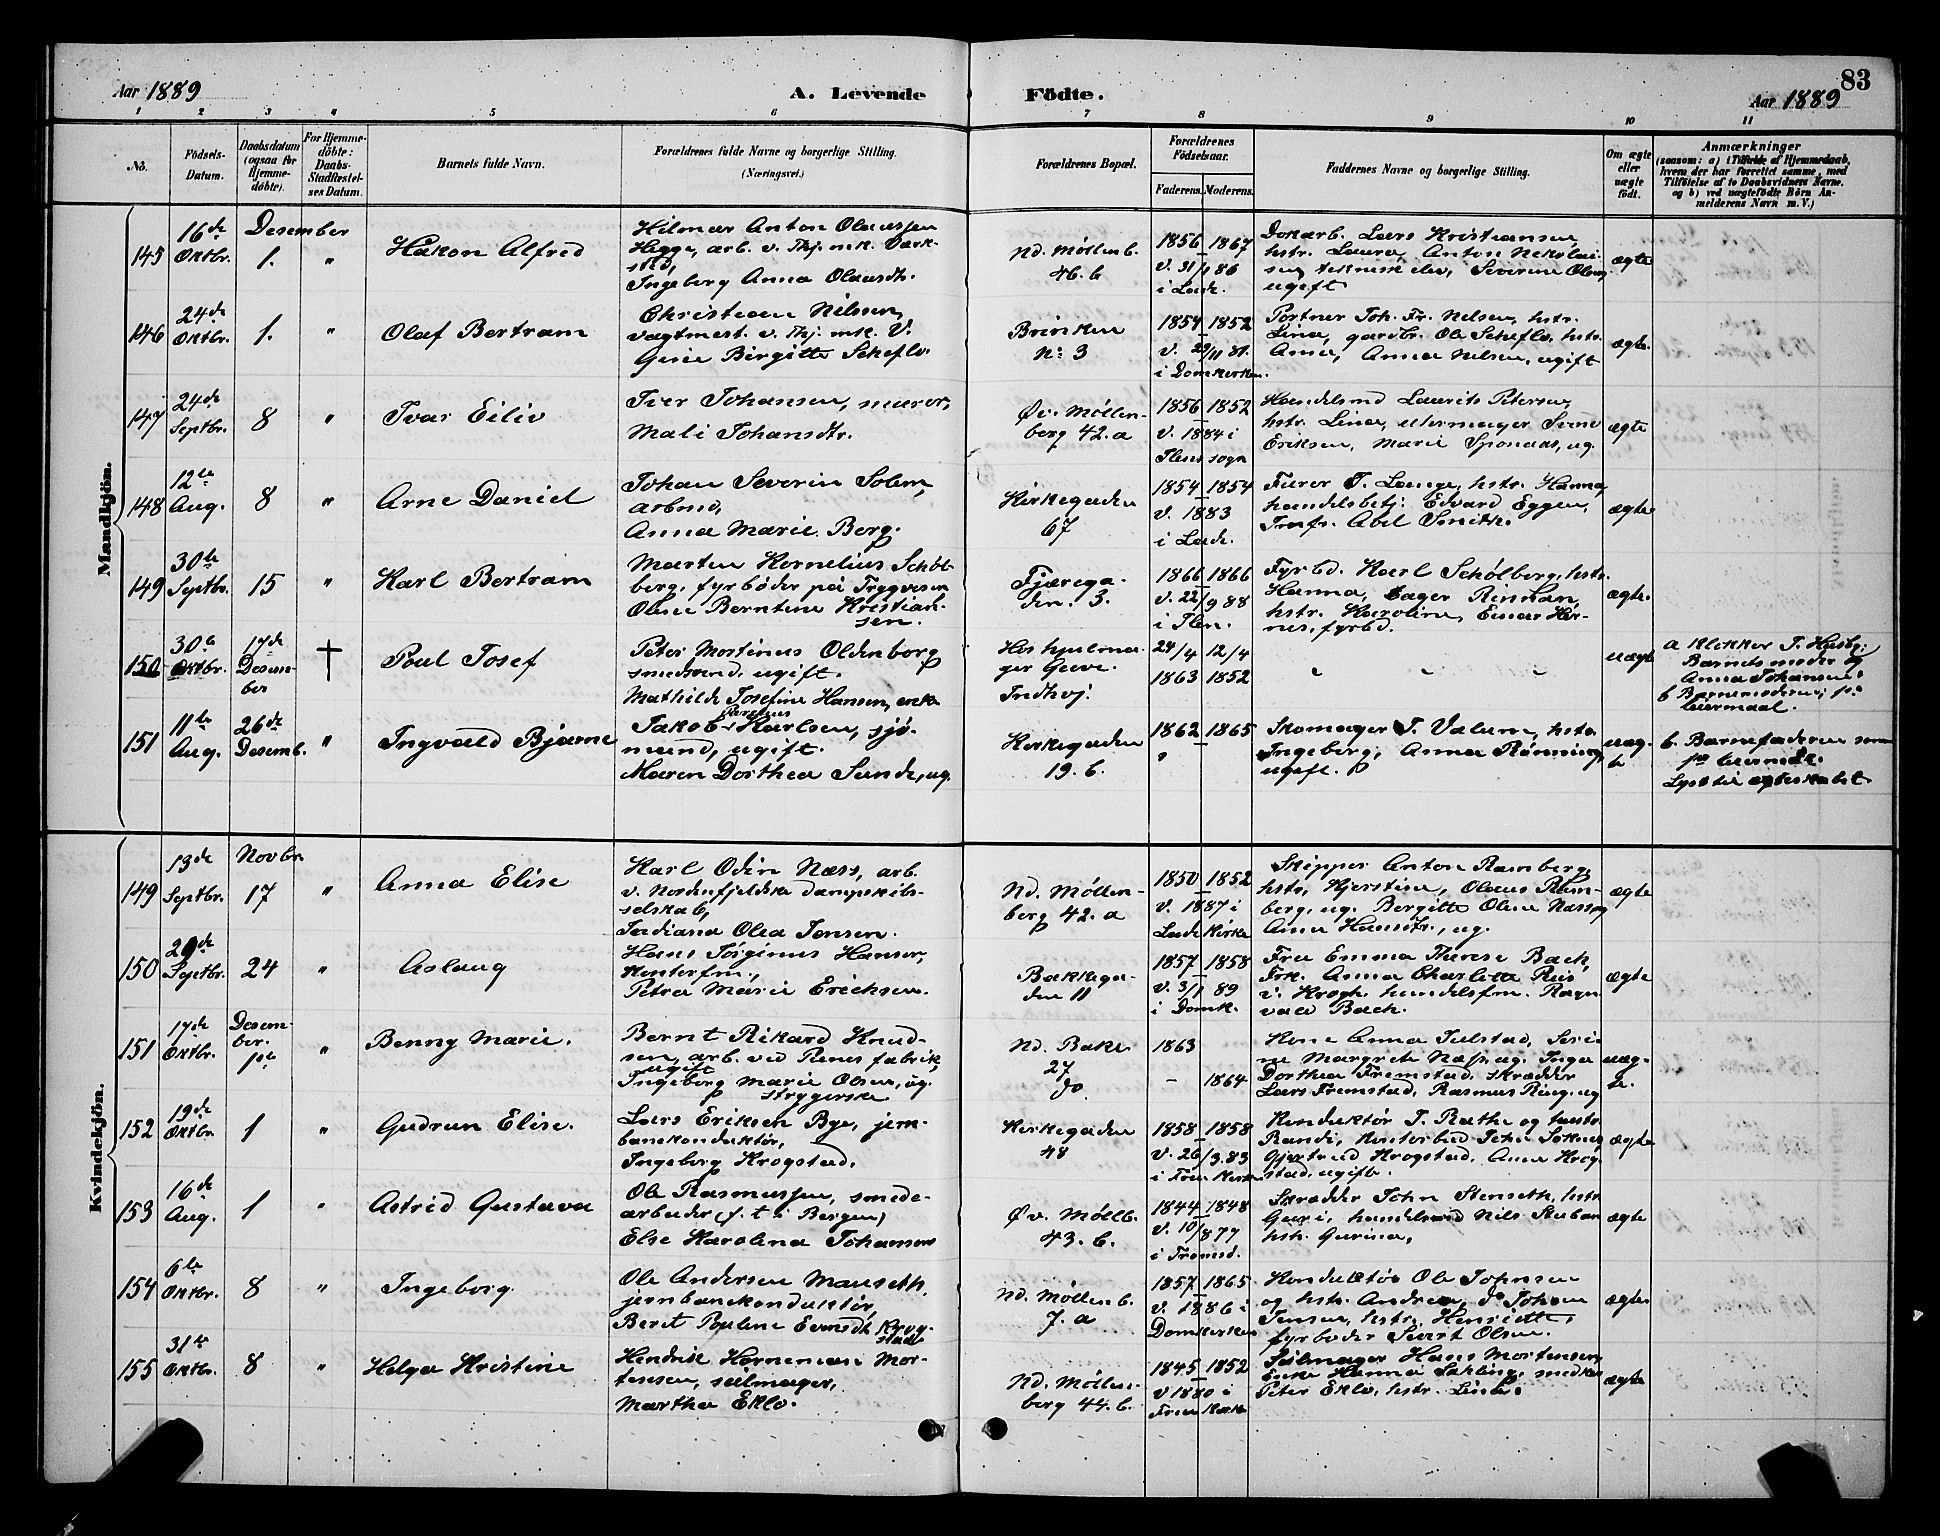 Aar 1889
A. Levende
Födte.
83
Aar 1889
1 2 3 4 5 6 7 8 9 10 11
No.
Födsels-
Datum.
Daabsdatum
(ogsaa for
Hjemme-
döbte).
For Hjemme-
döbte:
Daabs-
Stadfæstel-
ses Datum.
Barnets fulde Navn.
Forældrenes fulde Navne og borgerlige Stilling.
(Næringsvei.)
Forældrenes Bopæl.
Forældrenes
Födselsaar.
Faderens. Moderens.
Faddernes Navne og borgerlige Stilling.
Om ægte
eller
uægte
födt.
Anmærkninger
(saasom: a) i Tilfælde af Hjemmedaab,
hvem der har forrettet samme, med
Tilföielse af to Daabsvidners Navne.
og b) ved uægtefödte Börn An-
melderens Navn m. V.)
Mandkjön.
145
16de
Oktbr.
Desember
1.
"
Håkon Alfred
Hilmar Anton Olaussen
Hegge, arb. v. Thj. mk. Værk-
sted,
Ingeborg Anna Olausdtr.
Nd. Møllenb.
46. b
1856 1867
v. 31/1 86
i Lade.
Dokarb. Lars Kristiansen,
hstr. Laura, Anton Nikolai-
sen teknisk elev, Severine Olsen,
ugift
ægte
146
24de
Oktbr.
1.
"
Olaf Bertram
Christian Nilsen,
vagtmest. v. Thj. mk. V.
Gine Birgitte Scheflo.
Brinken
No: 3
1854 1852
v. 22/11 81.
i Domkirken.
Portner Joh. Fr. Nilsen, hstr.
Lina, gardbr. Ole Scheflo, hstr.
Anna, Anna Nilsen, ugift
ægte.
147
24de
Septbr.
8
"
Ivar Eiliv
Iver Johansen, murer,
Mali Johansdtr.
Øv. Møllen-
berg 42. a
1856 1852
v. 1884 i
Ilens sogn
Handelsmd Laurits Petersen,
hstr. Lina, urmager
Eriksen, Marie Sponaas, ug.
ægte
148
12te
Aug.
8
"
Arne Daniel
Johan Severin Solem,
arbmd,
Anna Marie Berg.
Kirkegaden
67
1854 1854
v. 1883
i Lade.
Furer T. Lange, hstr. Hanna,
handelsbetj. Edvard Eggen,
Jmfr. Abel Smith.
ægte
149
30te
Septbr.
15
"
Karl Bertram
Morten Kornelius Schöl-
berg, fyrbøder på Trygvesen
Oline Berntine Kristian-
sen.
Fjærega-
den. 3.
1866 1866
v. 22/9 88
i Ilen.
Fyrbd. Karl Schølberg, hstr.
Hanna, Bager Rinnan,
hstr. Karoline, Einar Hör-
nes, fyrbd.
ægte.
150
30te
Oktbr.
17de
Desem-
ber
†
Poul Josef
Peter Mortinus Oldenborg
smedsvend, ugift.
Mathilde Josefine Hansen, enke
Hos hjulma-
ger Greve
Indhvj.
24/4 12/4
1863 1852
" " "
uægte
a Klokker T. Husby;
Barnets moder og
Anna Johansen;
b Barnemoderen;
leiermaal.
151
11te
Aug.
26de
Desemb.
"
Ingvald Bjarne
Jakob Karlsen, sjö-
mand, ugift.
Maren Dorthea Sunde, ug.
Kirkegaden
19. b.
1862 1865
"
Skomager J. Valum, hstr.
Ingeborg, Anna Rönning,
ugift.
uæg-
te
b. Barnefaderen som
Lyst til ægteskabet
Kvindekjön.
149
13de
Septbr.
Novbr.
17
"
Anna Elise
Karl Odin Næss, arb.
v. Nordenfjeldske dampskibs-
selskab,
Jordiana Olea Jensen.
Nd. Møllen-
berg 42. a
1850 1852
v. 1887 i
Lade Kirke
Skipper Anton Ramberg,
hstr. Kjerstine, Olaus Ram-
berg, ug. Bergitte Oline Næss, ug
Anna Hansdtr., ug.
ægte
150
20de
Septbr.
24
"
Aslaug
Hans Jörginus Hansen,
kontorfm.,
Petra Marie Erichsen.
Bakkega-
den 11
1857 1858
v. 3/1 89
i Domk.
Fru Emma Therese Bach,
Frk. Anna Charlotte Riis
v. Krogh, handelsfm. Ragn-
vald Bach.
ægte
151
17de
Oktbr.
Desem-
ber.
1ste
"
Benny Marie.
Bernt Rikard Knud-
sen, arb. ved Renes fabrik,
ugift
Ingeborg Marie Olsen, ug.
strygerske
Nd. Bakl.
27
do.
1863
– 1864
Kone Anna Julstad, Seri-
ne Margrete Næss, ug. Inga
Dorthea Fremstad, skrædder
Lars Fremstad, Rasmus Ring, ug
uæg-
te.
152
19de
Oktbr
1
"
Gudrun Elise.
Lars Eriksen Bye, jern-
banekonduktör,
Ingeborg Krogstad.
Kirkegaden
48
1858 1858
v. 26/3. 83
i Frue Kirke
Konduktør J. Rathe og hustr.
Randi, kontorbud John Soknes,
Gjertrud Krogstad, Anna Krog-
stad, ugift.
ægte
153
16de
Aug.
1
"
Astrid Gustava
Ole Rasmussen, smede-
arbeider (f. t. i Bergen)
Else Karolina Johansen
Øv. Møllb.
43. b.
1844 1848
v. 10/8 77
i Tromsö.
Skrædder John Stenseth, hstr
Guri, handelsmd Nils Stuban
hstr. Gurina,
ægte
154
6te
Oktbr.
8
"
Ingeborg
Ole Andersen Mauseth,
jernbanekonduktör,
Berit Pauline Evensdtr. Krog-
stad
Nd. Møllenb.
7. a
1857 1865
v. 1886 i
Domkirken
Konduktör Ole Johnsen
og hstr. Andrea, do Johan
Jensen, hstr. Henriette,
fyrbøder Sivert Olsen.
ægte
155
31te
Oktbr.
8
"
Helga Kristine
Hendrik Horneman Mor-
tensen, seilmager,
Martha Eklo.
Nd. Møllen-
berg 44. b.
1845 1852
v 1880 i
Frue Kirke
Seilmager Hans Mortensen,
Enke Hanna Sakling, snedker
Peter Eklo, hstr. Lina.
ægte